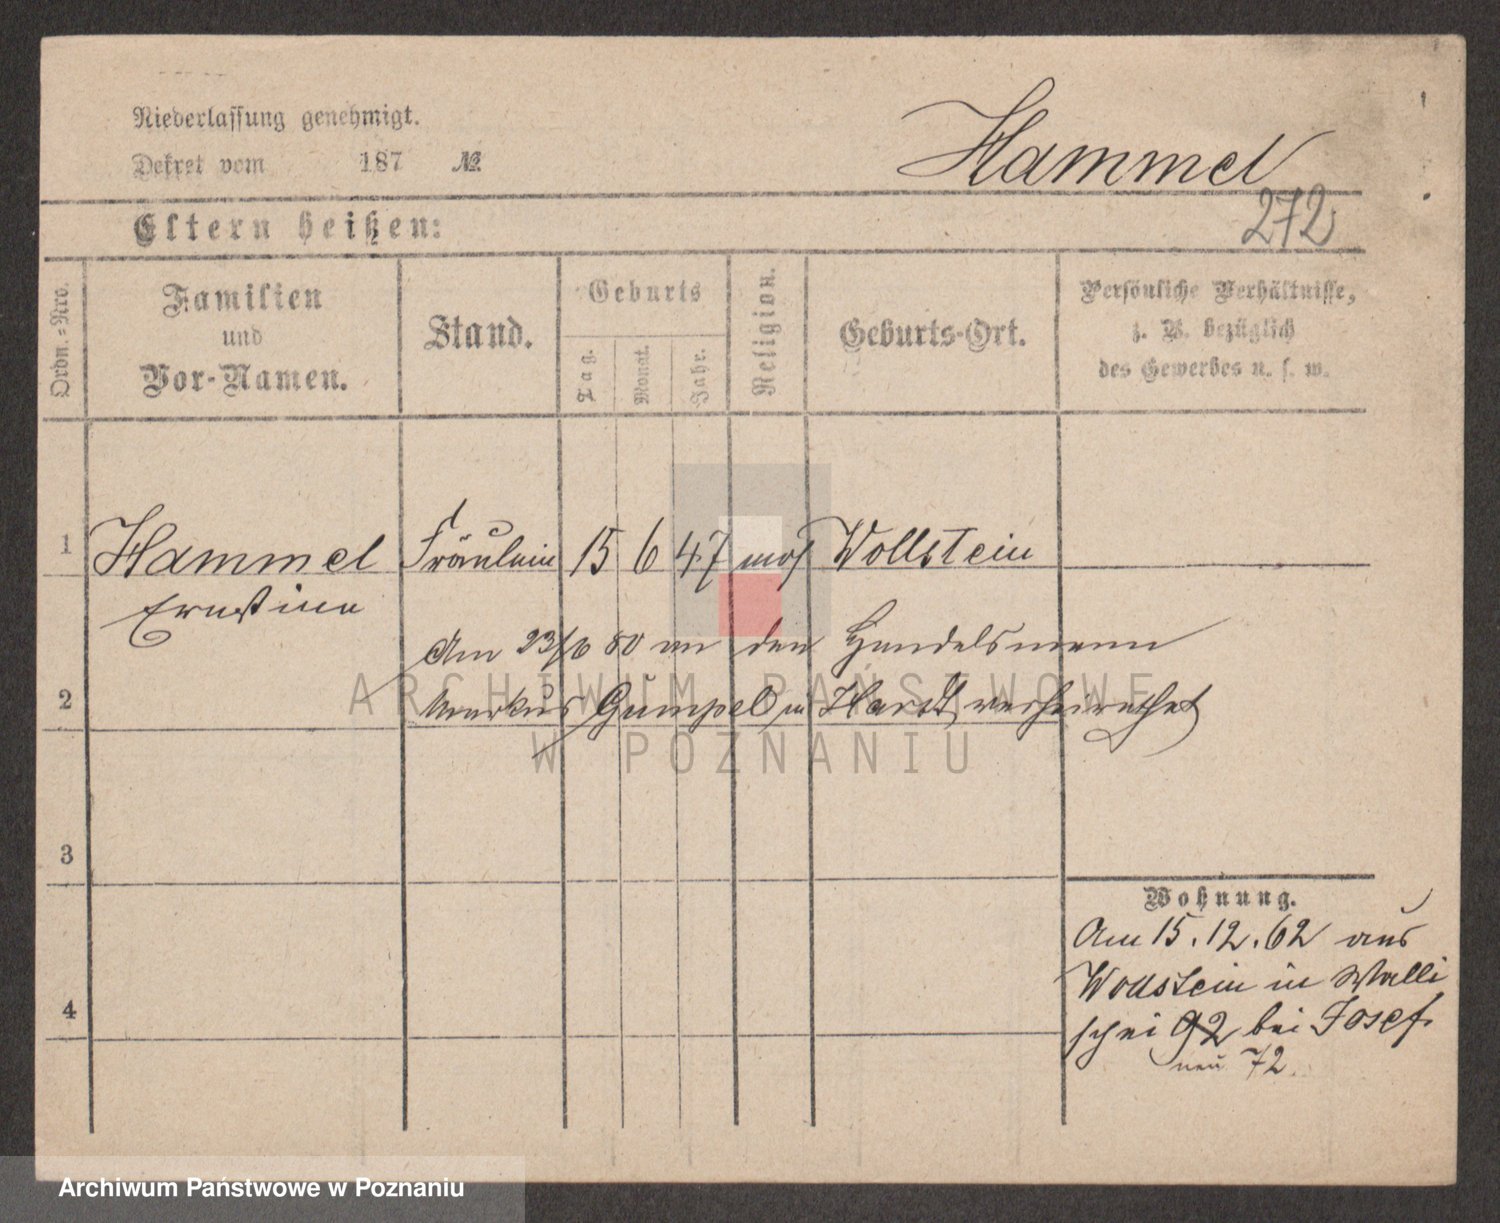 Niederlassung genehmigt.
Dekret vom 187 №
Hammel
272
Eltern heißen:
Ordn.-Nro.
Familien
und
Vor-Namen.
Stand.
Geburts
Tag.
Monat.
Jahr.
Religion.
Geburts-Ort.
Persönliche Verhältnisse,
z. B. bezüglich
des Gewerbes u. s. w.
1 Hammel Fräulein 15 6 47 mos Wollstein
Ernstine
Am 23/6 80 an den Handelsmann
2 Markus Gumpel in verheirathet
3
4
Wohnung.
Am 15.12.62 aus
Wollstein in Walli
schei 92 bei Josef.
neu 72.
ARCHIWUM PAŃSTWOWE
W POZNANIU
Archiwum Państwowe w Poznaniu